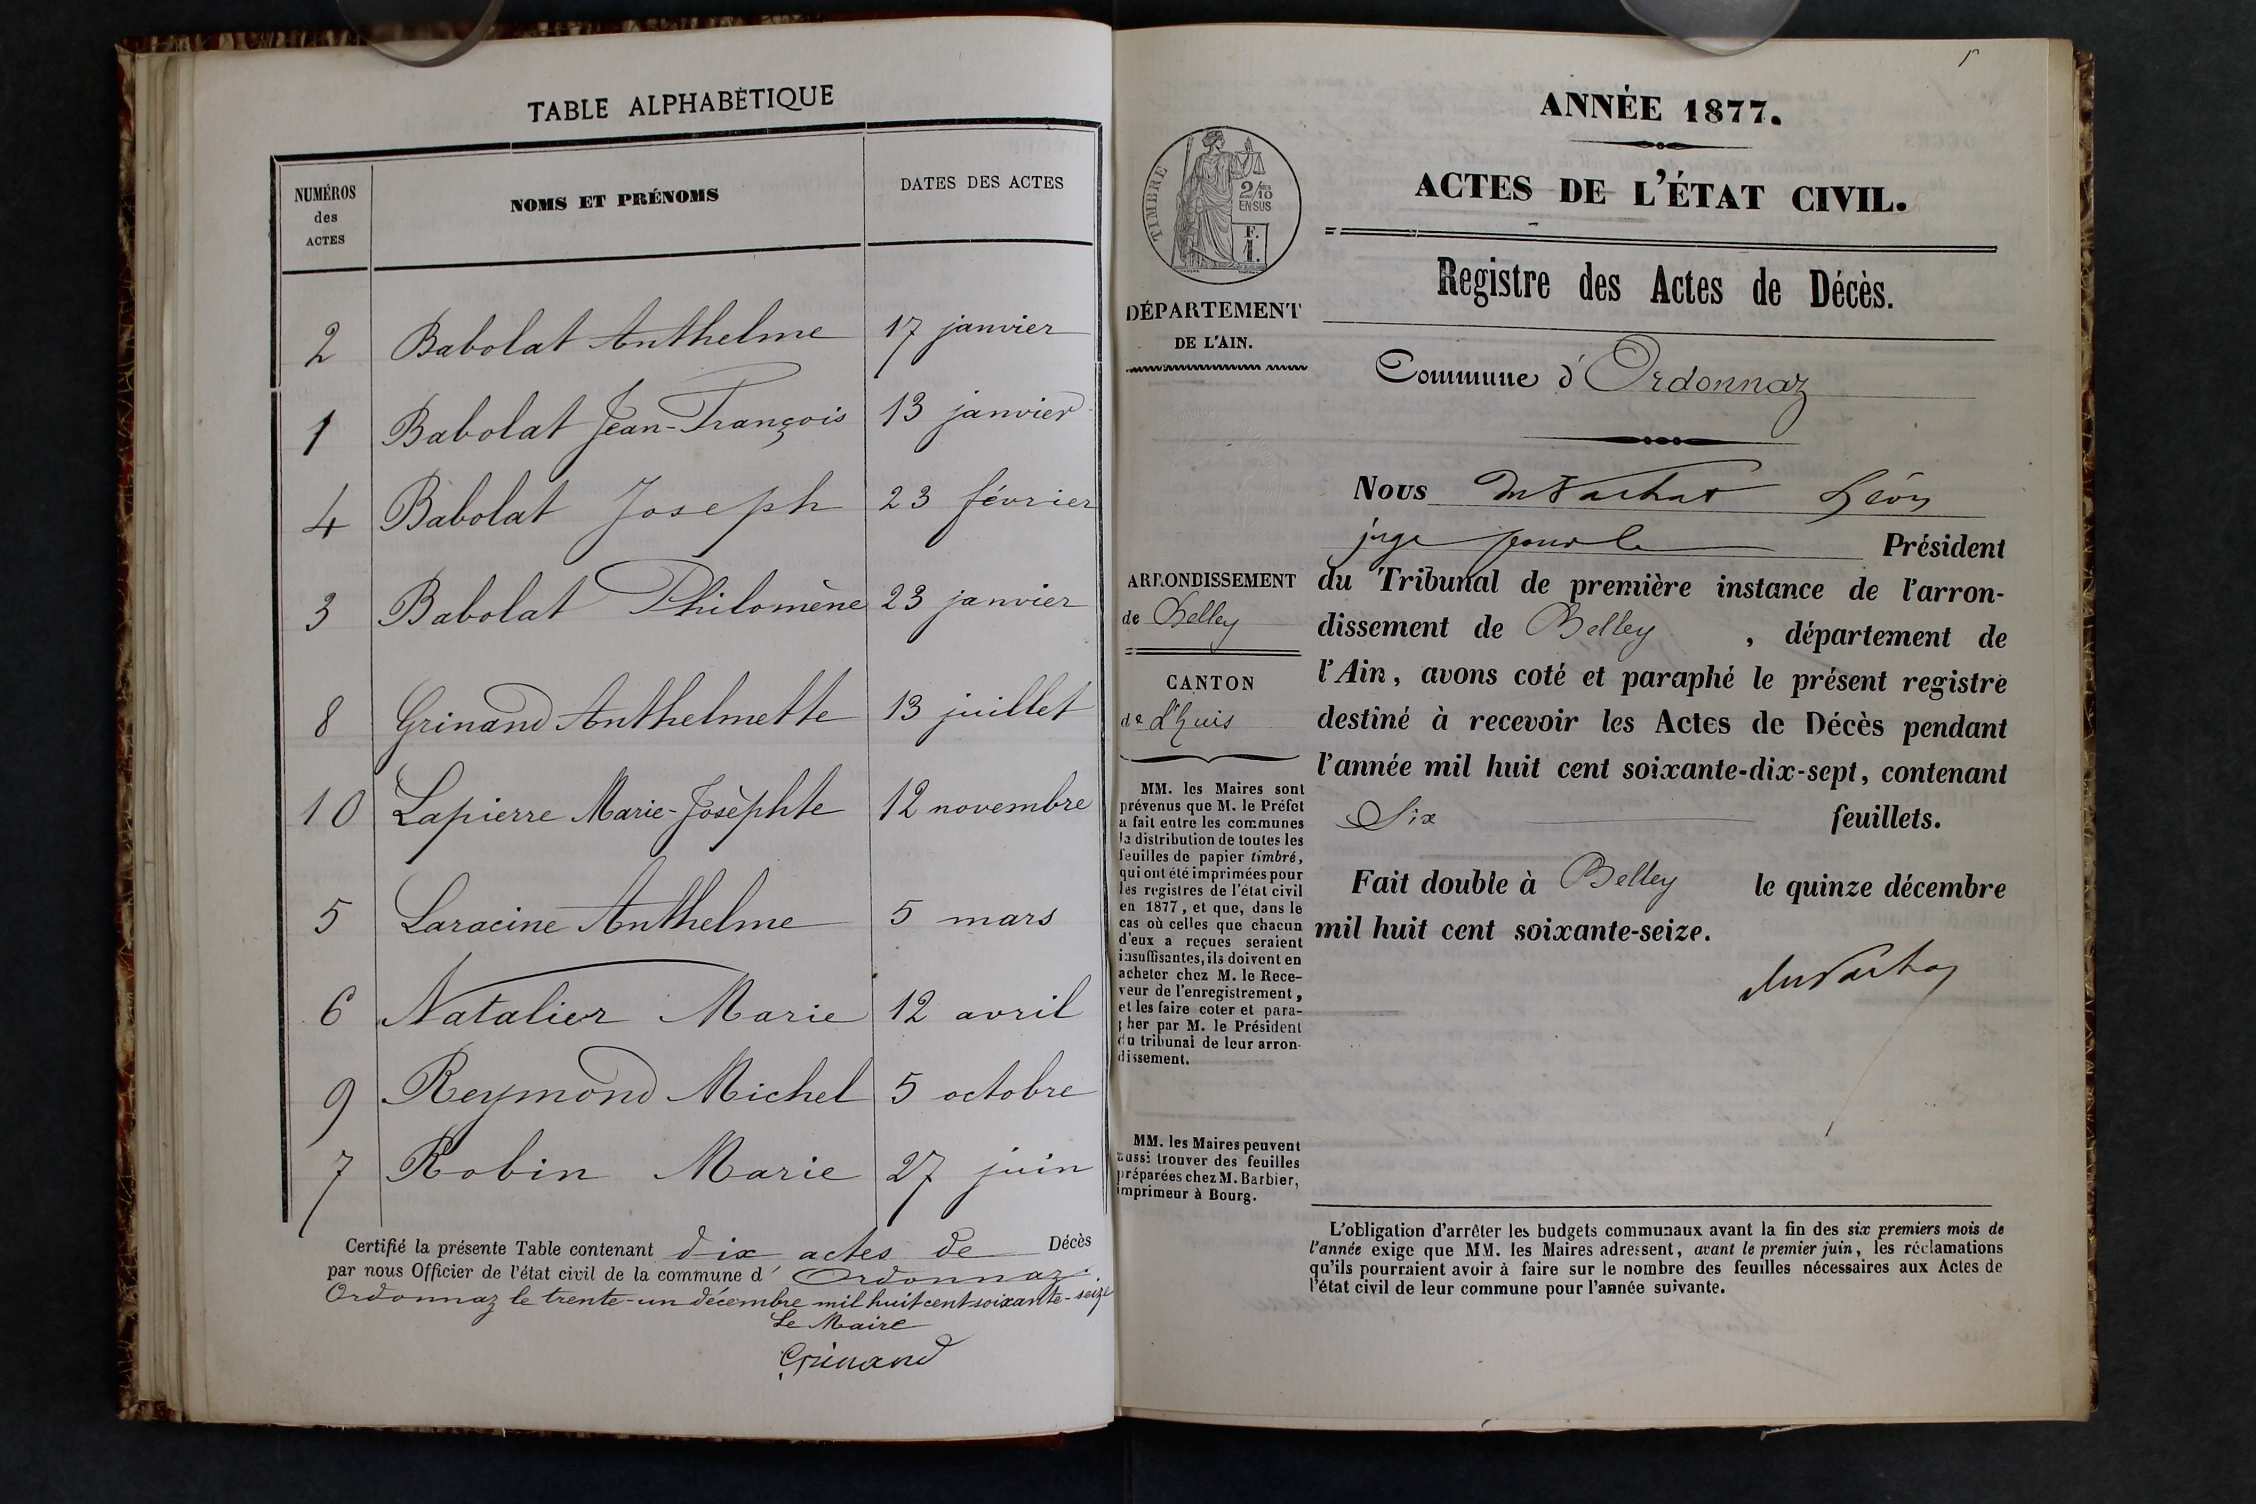 TABLE ALPHABÉTIQUE
NUMÉROS des ACTES
NOMS ET PRÉNOMS
DATES DES ACTES
2 Babolat Anthelme 17 janvier
1 Babolat Jean-François 13 janvier
4 Babolat Joseph 23 février
3 Babolat Philomène 23 janvier
8 Grinand Anthelmette 13 juillet
10 Lapierre Marie-Josèphte 12 novembre
5 Laracine Anthelme 5 mars
6 Natalier Marie 12 avril
9 Reymond Michel 5 octobre
7 Robin Marie 27 juin
Certifié la présente Table contenant dix actes de Décès
par nous Officier de l'état civil de la commune d' Ordonnaz
Ordonnaz le trente-un décembre mil huit cent soixante-seize
Le Maire
Grinand
TIMBRE
2/10
EN SUS
F.
1.
DÉPARTEMENT
DE L'AIN.
ARRONDISSEMENT
de Belley
CANTON
de L'huis
MM. les Maires sont
prévenus que M. le Préfet
a fait entre les communes
la distribution de toutes les
feuilles de papier timbré,
qui ont été imprimées pour
les registres de l'état civil
en 1877, et que, dans le
cas où celles que chacun
d'eux a reçues seraient
insuffisantes, ils doivent en
acheter chez M. le Rece-
veur de l'enregistrement,
et les faire coter et para-
pher par M. le Président
du tribunal de leur arron-
dissement.
MM. les Maires peuvent
aussi trouver des feuilles
préparées chez M. Barbier,
imprimeur à Bourg.
ANNÉE 1877.
ACTES DE L'ÉTAT CIVIL.
Registre des Actes de Décès.
Commune d'Ordonnaz
Nous du Vachat Léon
juge pour le Président
du Tribunal de première instance de l'arron-
dissement de Belley, département de
l'Ain, avons coté et paraphé le présent registre
destiné à recevoir les Actes de Décès pendant
l'année mil huit cent soixante-dix-sept, contenant
Six feuillets.
Fait double à Belley le quinze décembre
mil huit cent soixante-seize.
du Vachat
L'obligation d'arrêter les budgets communaux avant la fin des six premiers mois de
l'année exige que MM. les Maires adressent, avant le premier juin, les réclamations
qu'ils pourraient avoir à faire sur le nombre des feuilles nécessaires aux Actes de
l'état civil de leur commune pour l'année suivante.